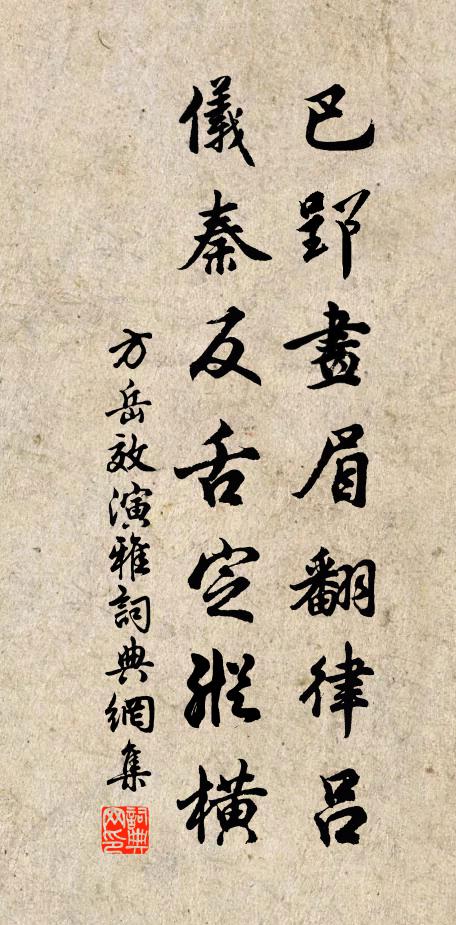 巴郢畫眉翻律呂
儀秦反舌定縱橫
方岳效演雅詞典網集
詞典網印